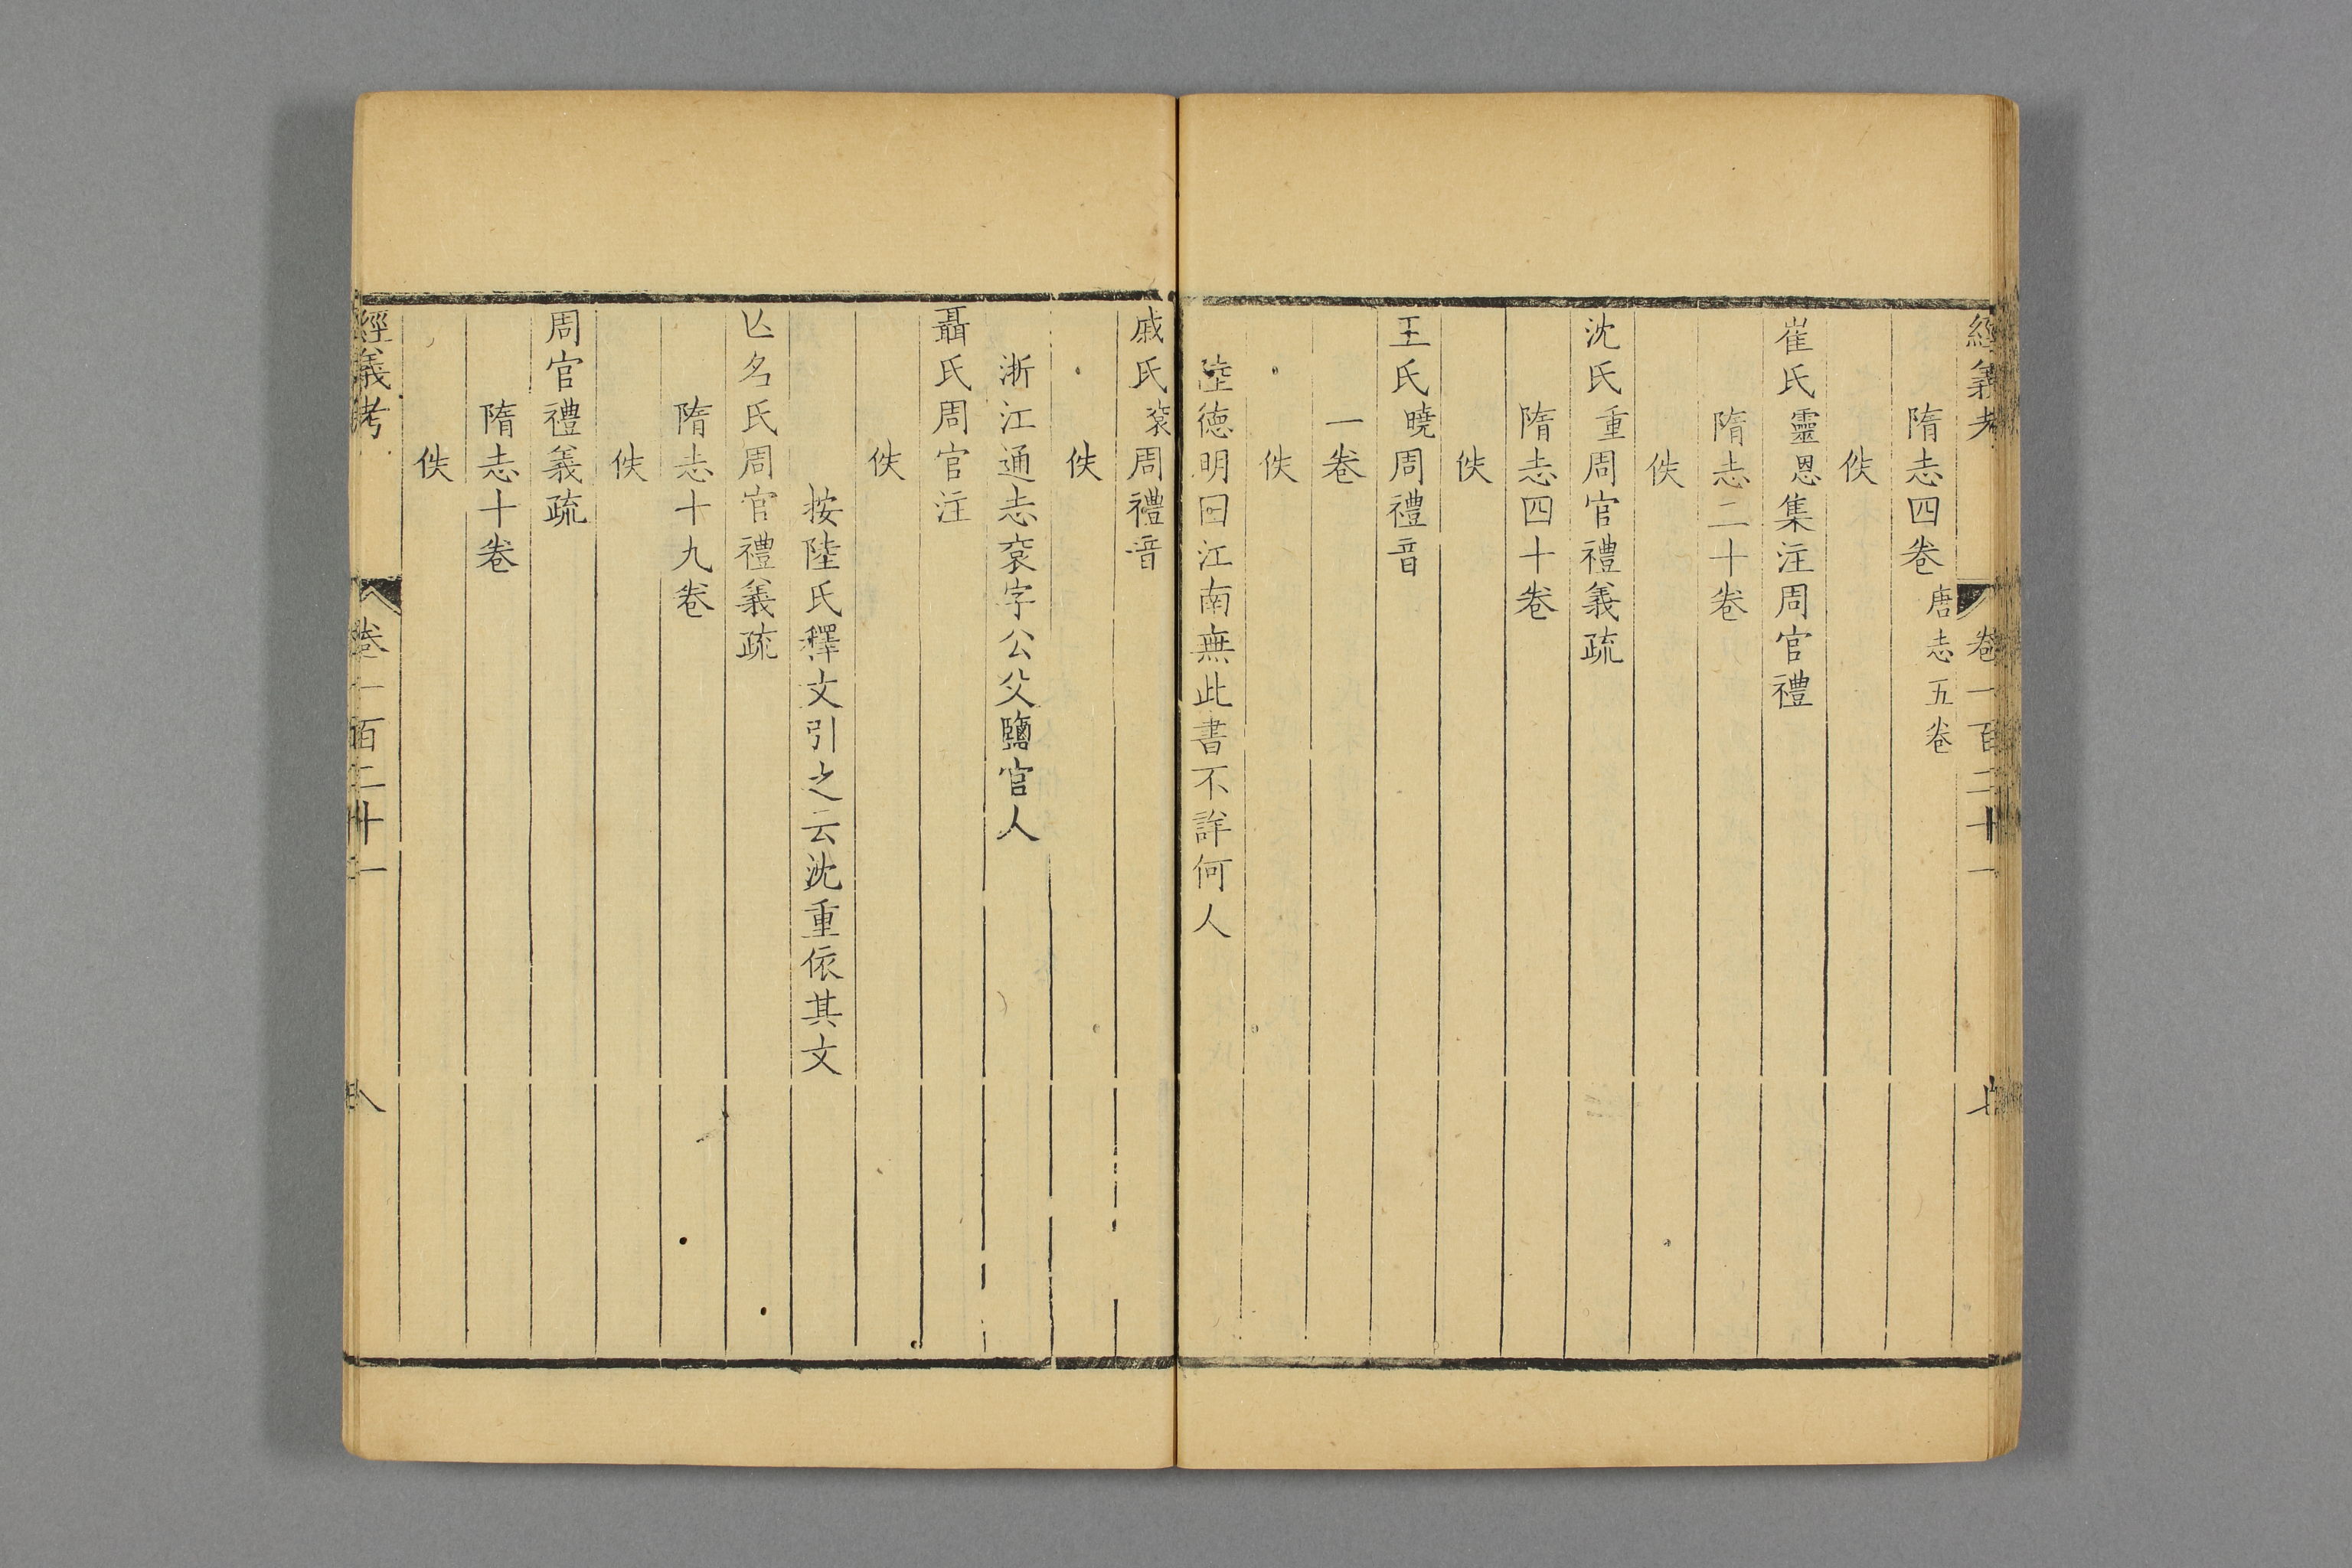 經義考 卷一百二十一 七
隋志四卷 唐志五卷
佚
崔氏靈恩集注周官禮
隋志二十卷
佚
沈氏重周官禮義疏
隋志四十卷
佚
王氏曉周禮音
一卷
佚
陸德明曰江南無此書不詳何人
戚氏袞周禮音
佚
浙江通志袞字公父鹽官人
聶氏周官注
佚
按陸氏釋文引之云沈重依其文
亾名氏周官禮義疏
隋志十九卷
佚
周官禮義疏
隋志十卷
佚
經義考 卷一百二十一 八